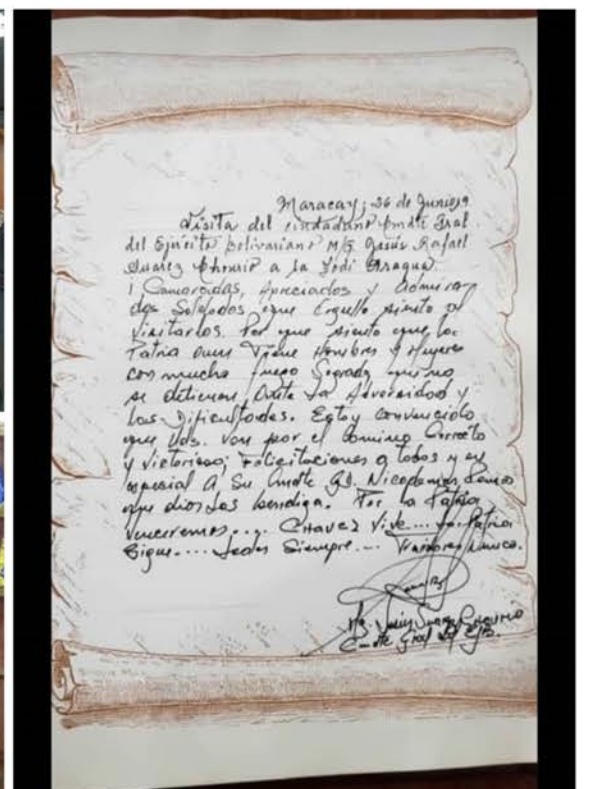 Maracay; 26 de Junio 19
Visita del ciudadano Cmdte Gral.
del Ejército Bolivariano M/G Jesús Rafael
Suarez Chourio a la Zodi Aragua.
¡ Camaradas, Apreciados y admira-
dos Soldados, que Orgullo siento al
Visitarlos. Por que siento que la
Patria Tiene Hombres y Mujeres
con mucho fuego Sagrado que no
se detienen Ante La Adversidad y
Las Dificultades. Estoy convencido
que Uds. Van por el Camino Correcto
y Victorioso; Felicitaciones a todos y en
especial A Su Cmdte GD. Nicodemus Ramos
que dios Los bendiga. Por la Patria
venceremos.... Chavez Vive... La Patria
Sigue.... Leales Siempre... Traidores Nunca.
MG. Jesús Suarez Chourio
Cmdte Gral del EJB.